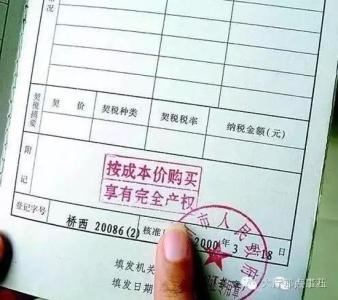 契税摘要
契价 契税种类 契税税率 纳税金额(元)
附记
按成本价购买
享有完全产权
登记字号 桥西 20086(2) 核准 2000年3月18日
市人民政府
填发机关
填发日期